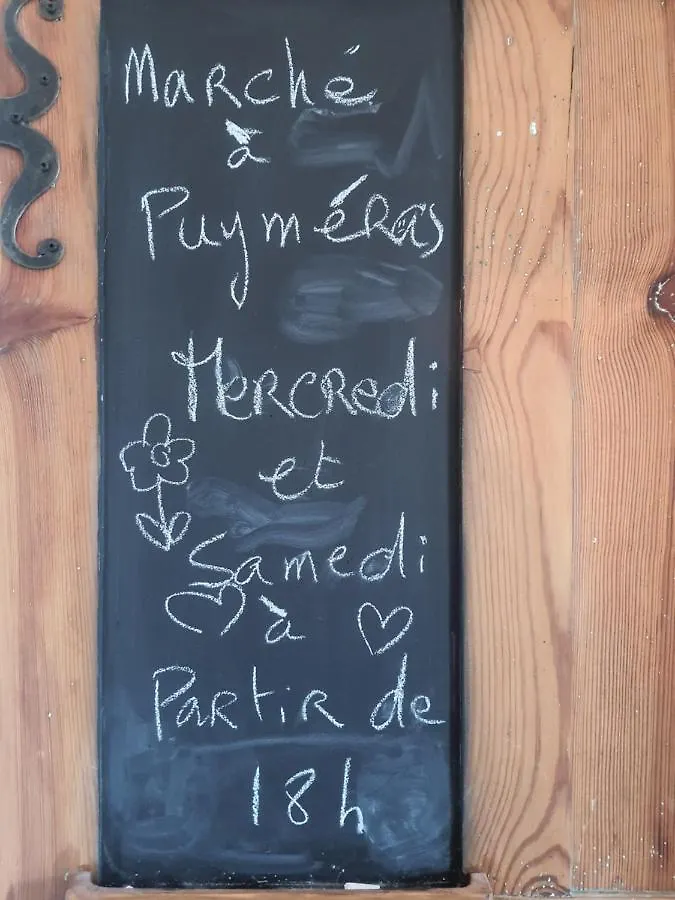 Marché
à
Puyméras
Mercredi
et
Samedi
à
Partir de
18h